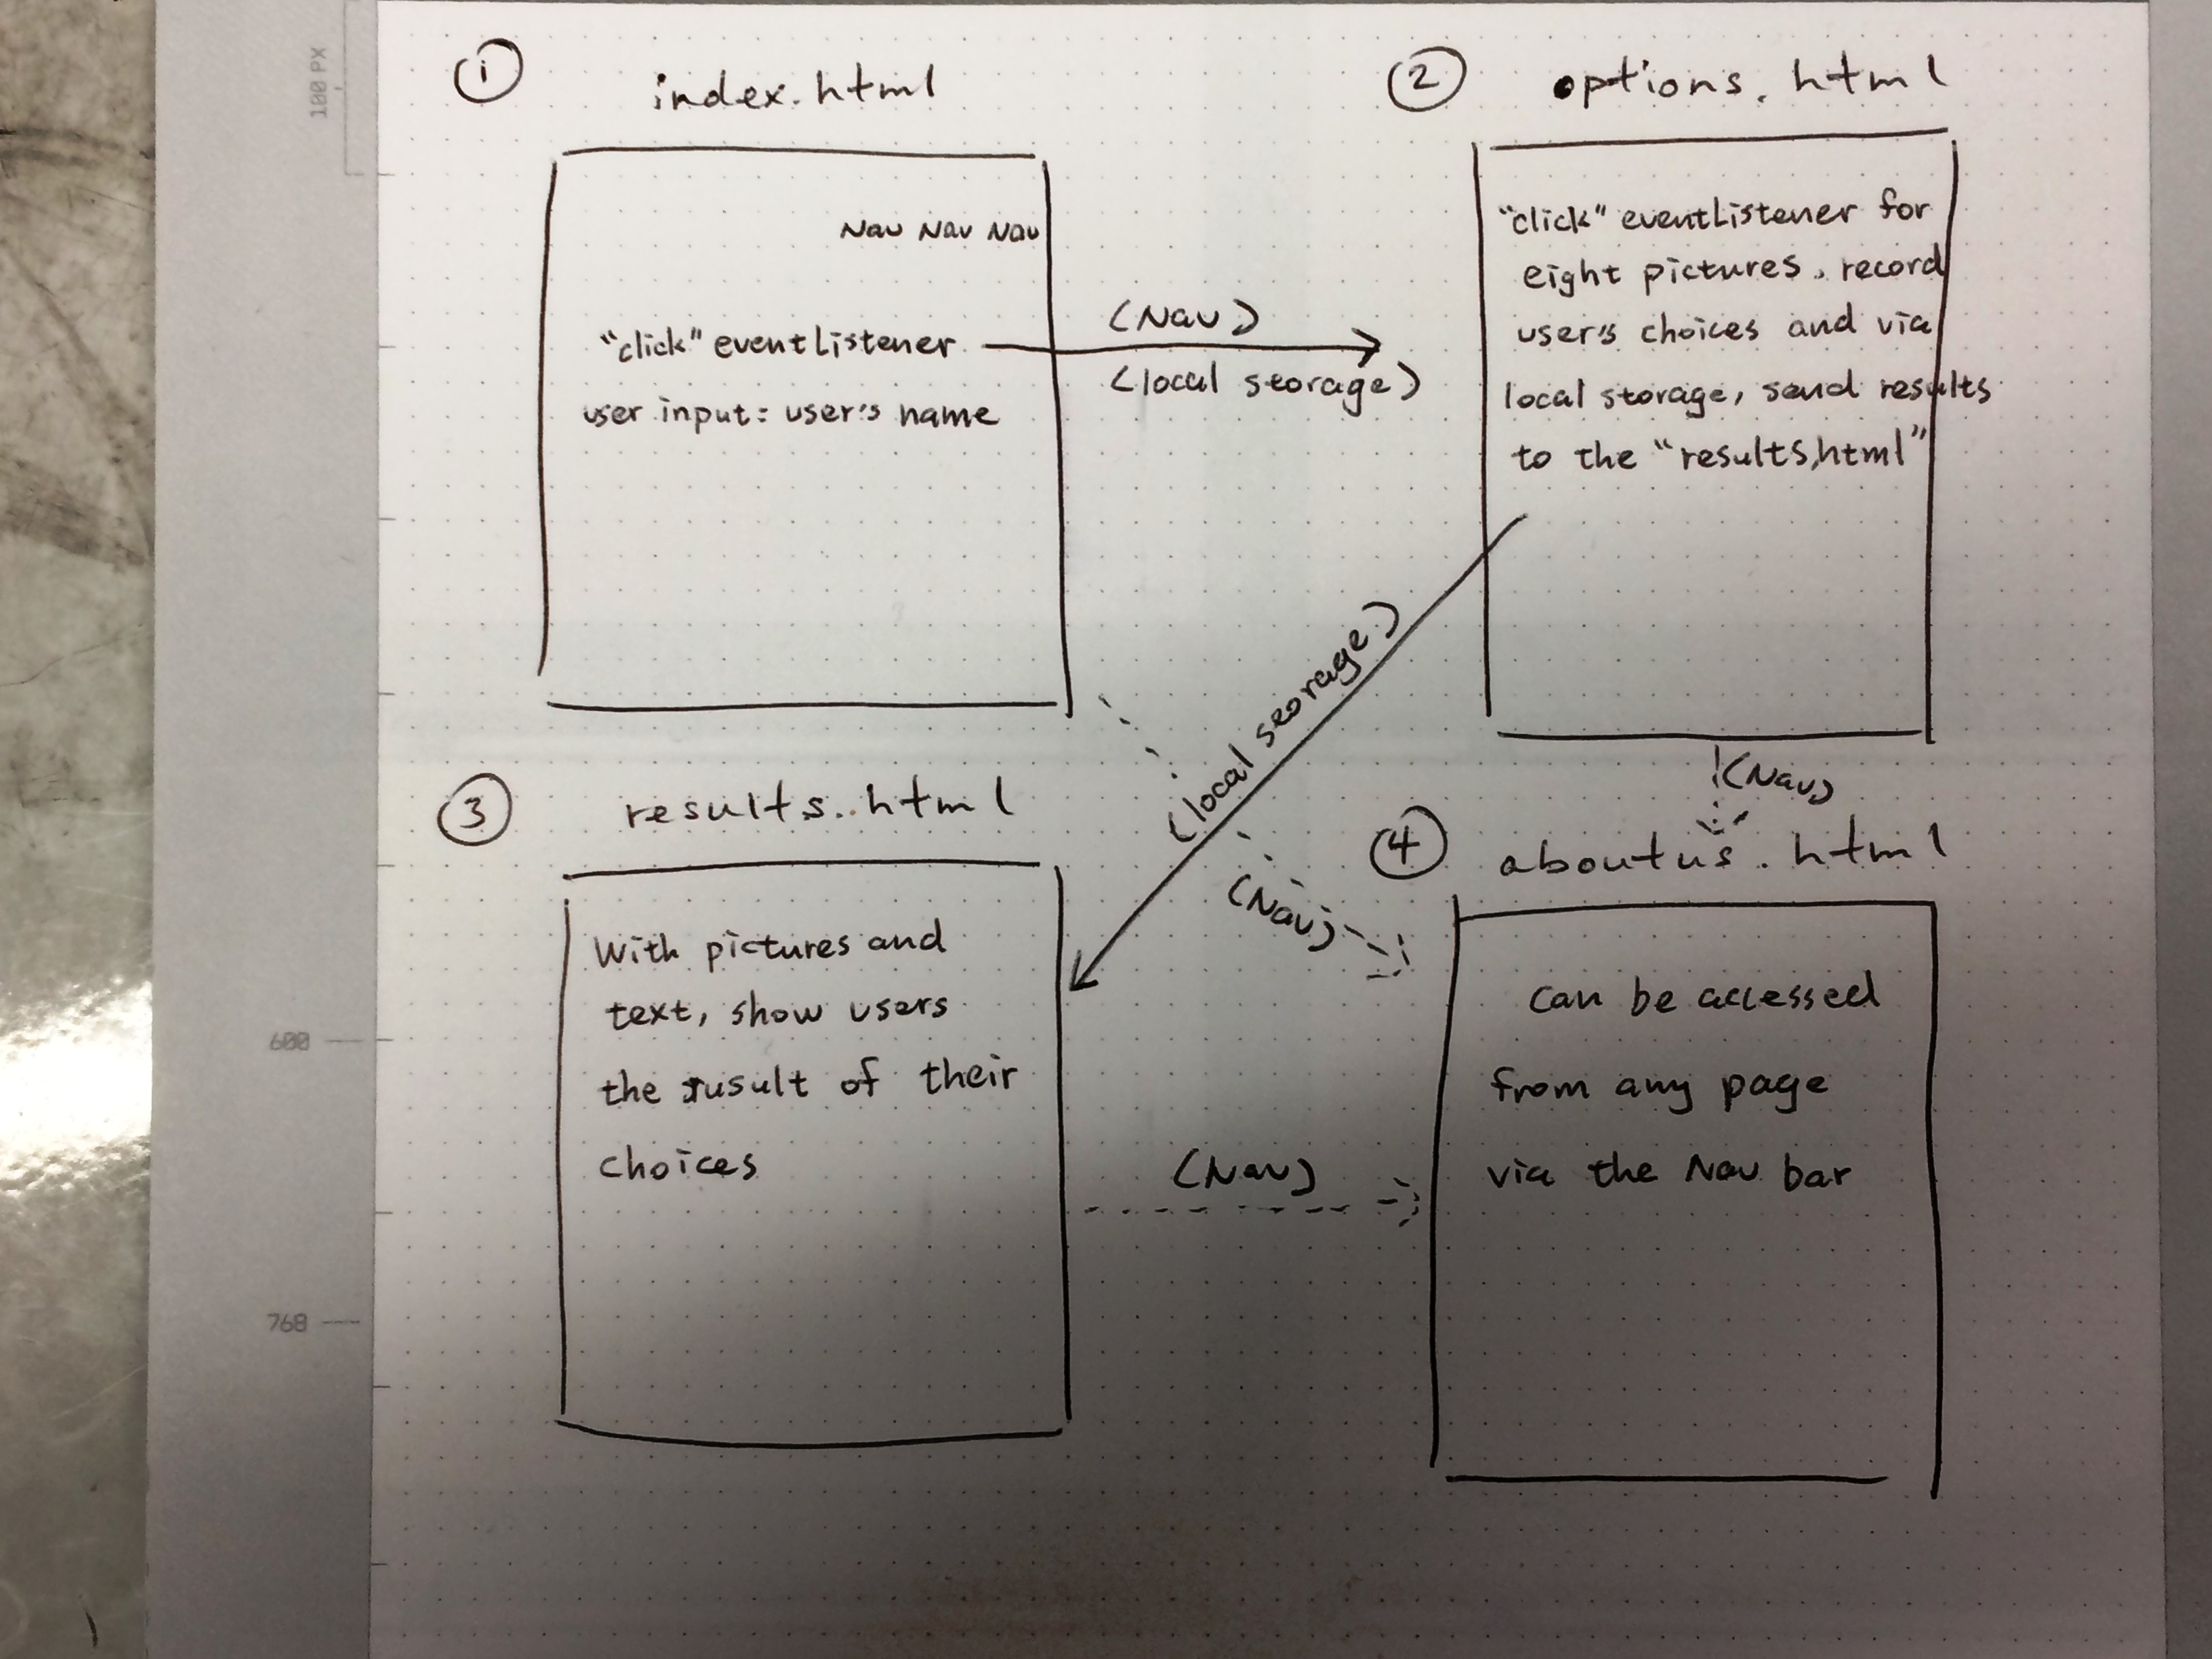 100 PX
① index.html
Nav Nav Nav
"click" eventListener
user input: user's name
(Nav)
(local storage)
② options.html
"click" eventListener for
eight pictures, record
user's choices and via
local storage, send results
to the "results,html"
(local storage)
(Nav)
(Nav)
③ results..html
With pictures and
text, show users
the rusult of their
choices
(Nav)
④ aboutus.html
can be accessed
from any page
via the Nav bar
600
768